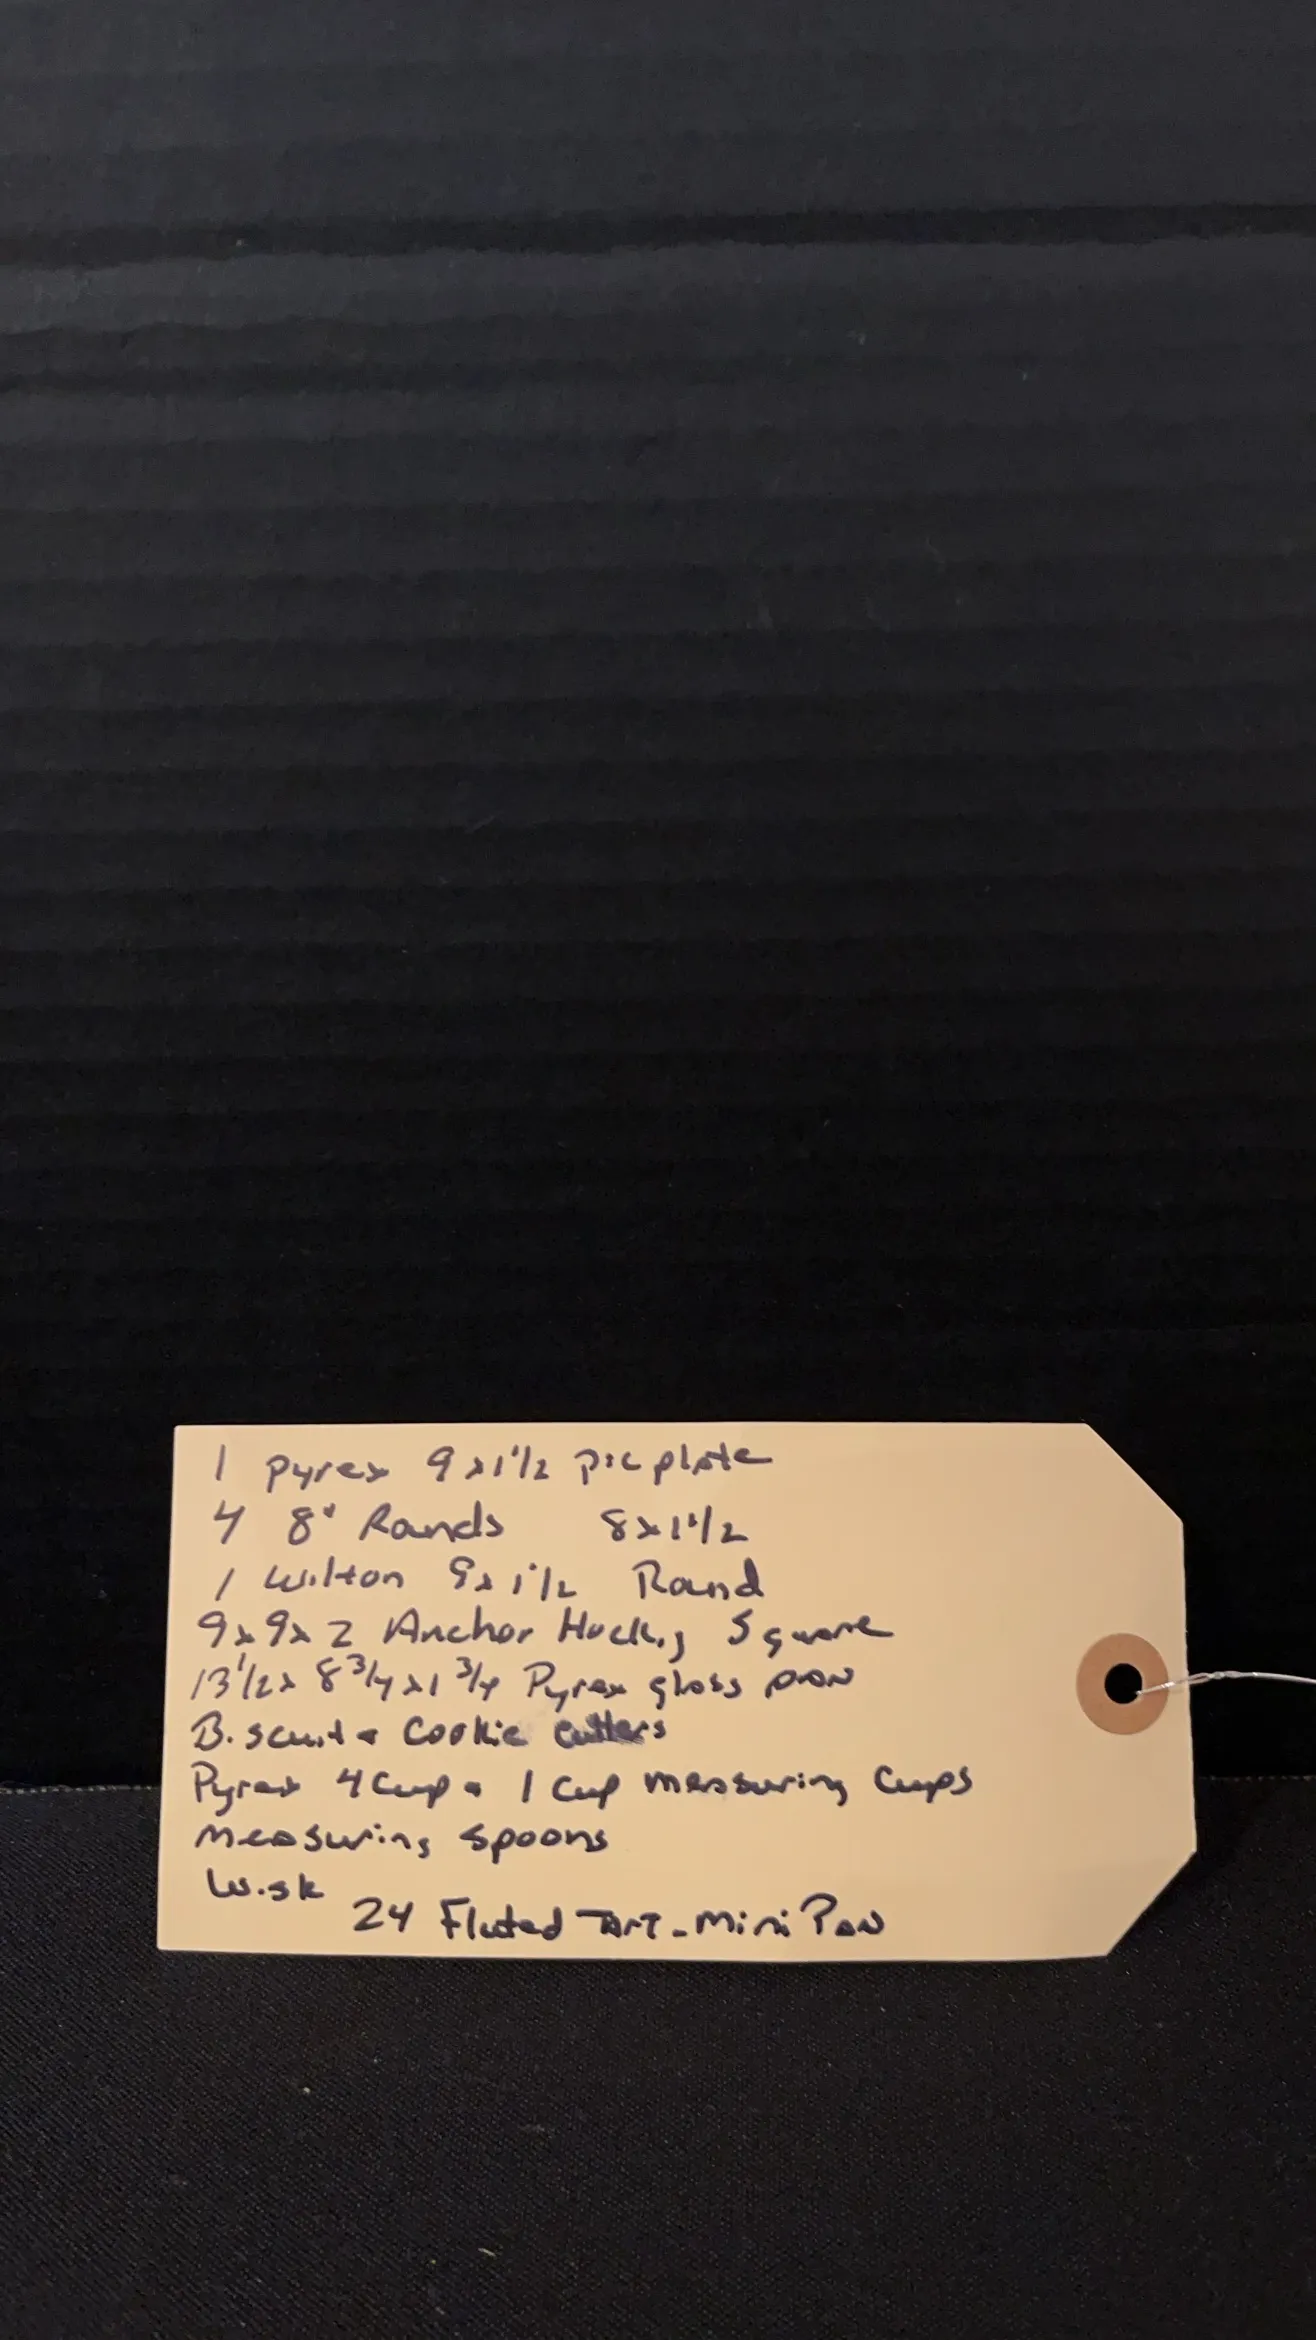 1 Pyrex 9x1½ pie plate
4 8" Rounds 8x1½
1 Wilton 9x1½ Round
9x9x2 Anchor Hocking Square
13½x8¾x1¾ Pyrex glass pan
Biscuit & Cookie cutters
Pyrex 4 Cup & 1 Cup measuring Cups
measuring spoons
Wisk
24 Fluted Tart-mini Pan